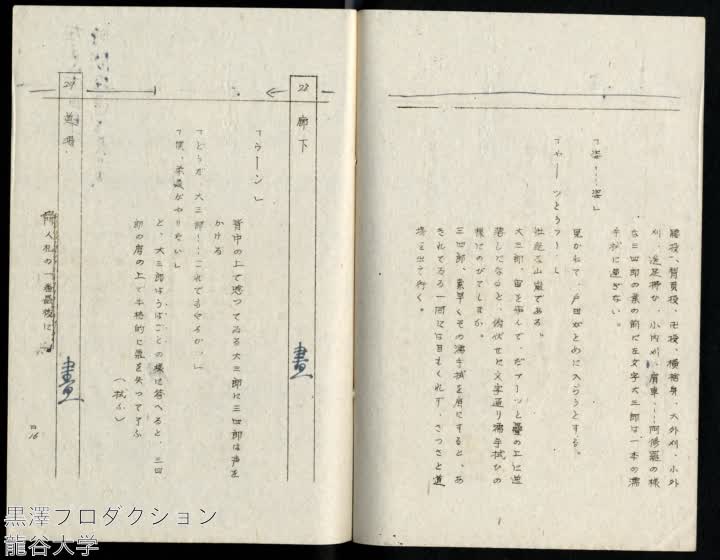 腰投、背負投、巴投、横捨身、大外刈、小外
刈、送足拂ひ、小内刈、肩車……阿修羅の様
な三四郎の業の前に左文字大三郎は一本の濡
手拭に過ぎない。
「姿……姿」
呟かれて、戸田がとめに入らうとする。
「やーッとうッ！」
壮絶な山嵐である。
大三郎、宙を飛んで、だァーッと疊の上に逆
落しになると、俯伏せに文字通り濡手拭ひの
様にのびてしまふ。
三四郎、素早くその濡手拭を肩にすると、あ
きれてゐる一同には目もくれず、さつさと道
場を出て行く。
28 廊下
晝
「ウーン」
背中の上で唸つてゐる大三郎に三四郎は声を
かける
「どうだ、大三郎……これでもやるかッ」
「僕、柔道がやりたい」
と、大三郎はうはごとの様に答へると、三四
郎の肩の上で本格的に氣を失つて了ふ
29 道場
晝
門人札の一番最後に
ロ 16
黒澤プロダクション
龍谷大学